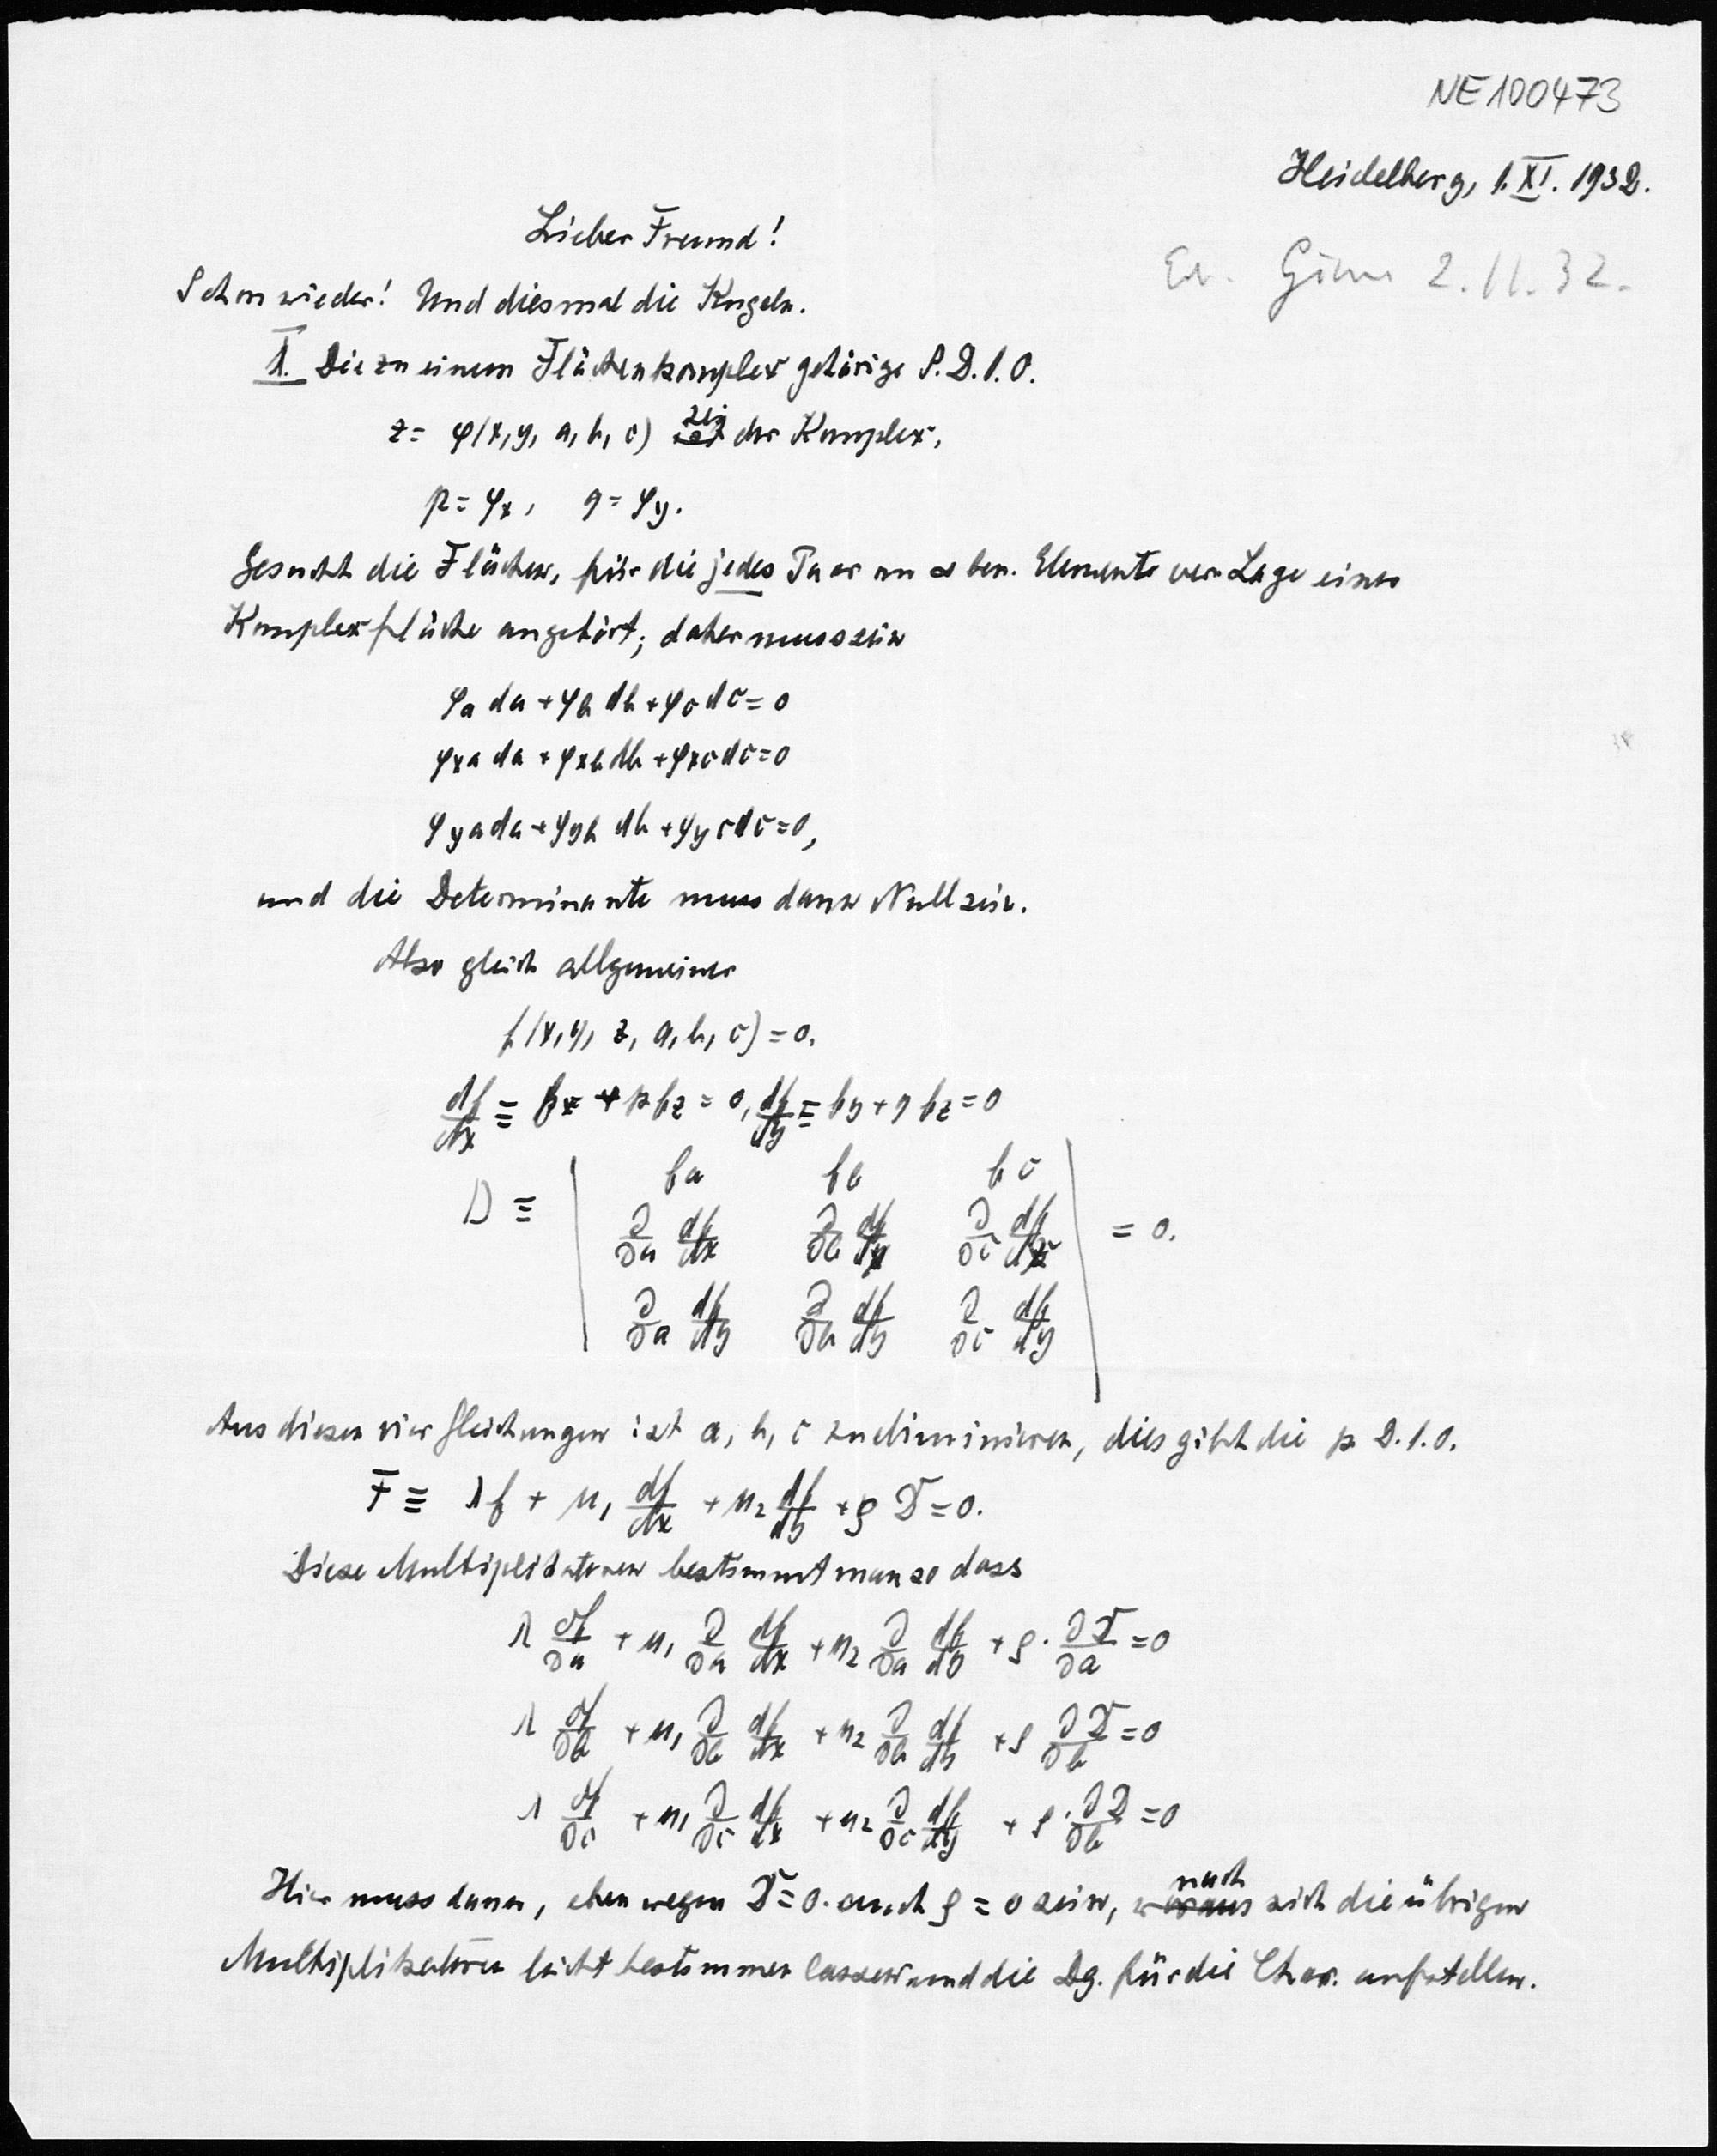 NE100473
Heidelberg, 1.XI.1932.
Lieber Freund!
2.11.32.
Schon wieder! Und diesmal die Kugeln.
1. Die zu einem Flächenkomplex gehörige P.D.1.O.
z = φ(x, y, a, b, c) sei der Komplex,
p = φx, q = φy.
Gesucht die Flächen, für die jedes Paar von ∞ ben. Elemente ver. Lage einer
Komplexfläche angehört; daher muss sein
φa da + φb db + φc dc = 0
φxa da + φxb db + φxc dc = 0
φya da + φyb db + φyc dc = 0,
und die Determinante muss dann Null sein.
Also gleich allgemeiner
f(x, y, z, a, b, c) = 0.
df/dx ≡ fx + p fz = 0, df/dy ≡ fy + q fz = 0
D ≡ | fa fb fc
∂/∂a df/dx ∂/∂b df/dx ∂/∂c df/dx | = 0.
∂/∂a df/dy ∂/∂b df/dy ∂/∂c df/dy
Aus diesen vier Gleichungen ist a, b, c zu eliminieren, dies gibt die p D.1.O.
F ≡ λf + μ1 df/dx + μ2 df/dy + ρ D = 0.
Diese Multiplikatoren bestimmt man so dass
λ ∂f/∂a + μ1 ∂/∂a df/dx + μ2 ∂/∂a df/dy + ρ · ∂D/∂a = 0
λ ∂f/∂b + μ1 ∂/∂b df/dx + μ2 ∂/∂b df/dy + ρ ∂D/∂b = 0
λ ∂f/∂c + μ1 ∂/∂c df/dx + μ2 ∂/∂c df/dy + ρ · ∂D/∂b = 0
Hier muss dann, eben wegen D = 0. auch ρ = 0 sein, wonach sich die übrigen
Multiplikatoren leicht bestimmen lassen und die Dg. für die Char. aufstellen.